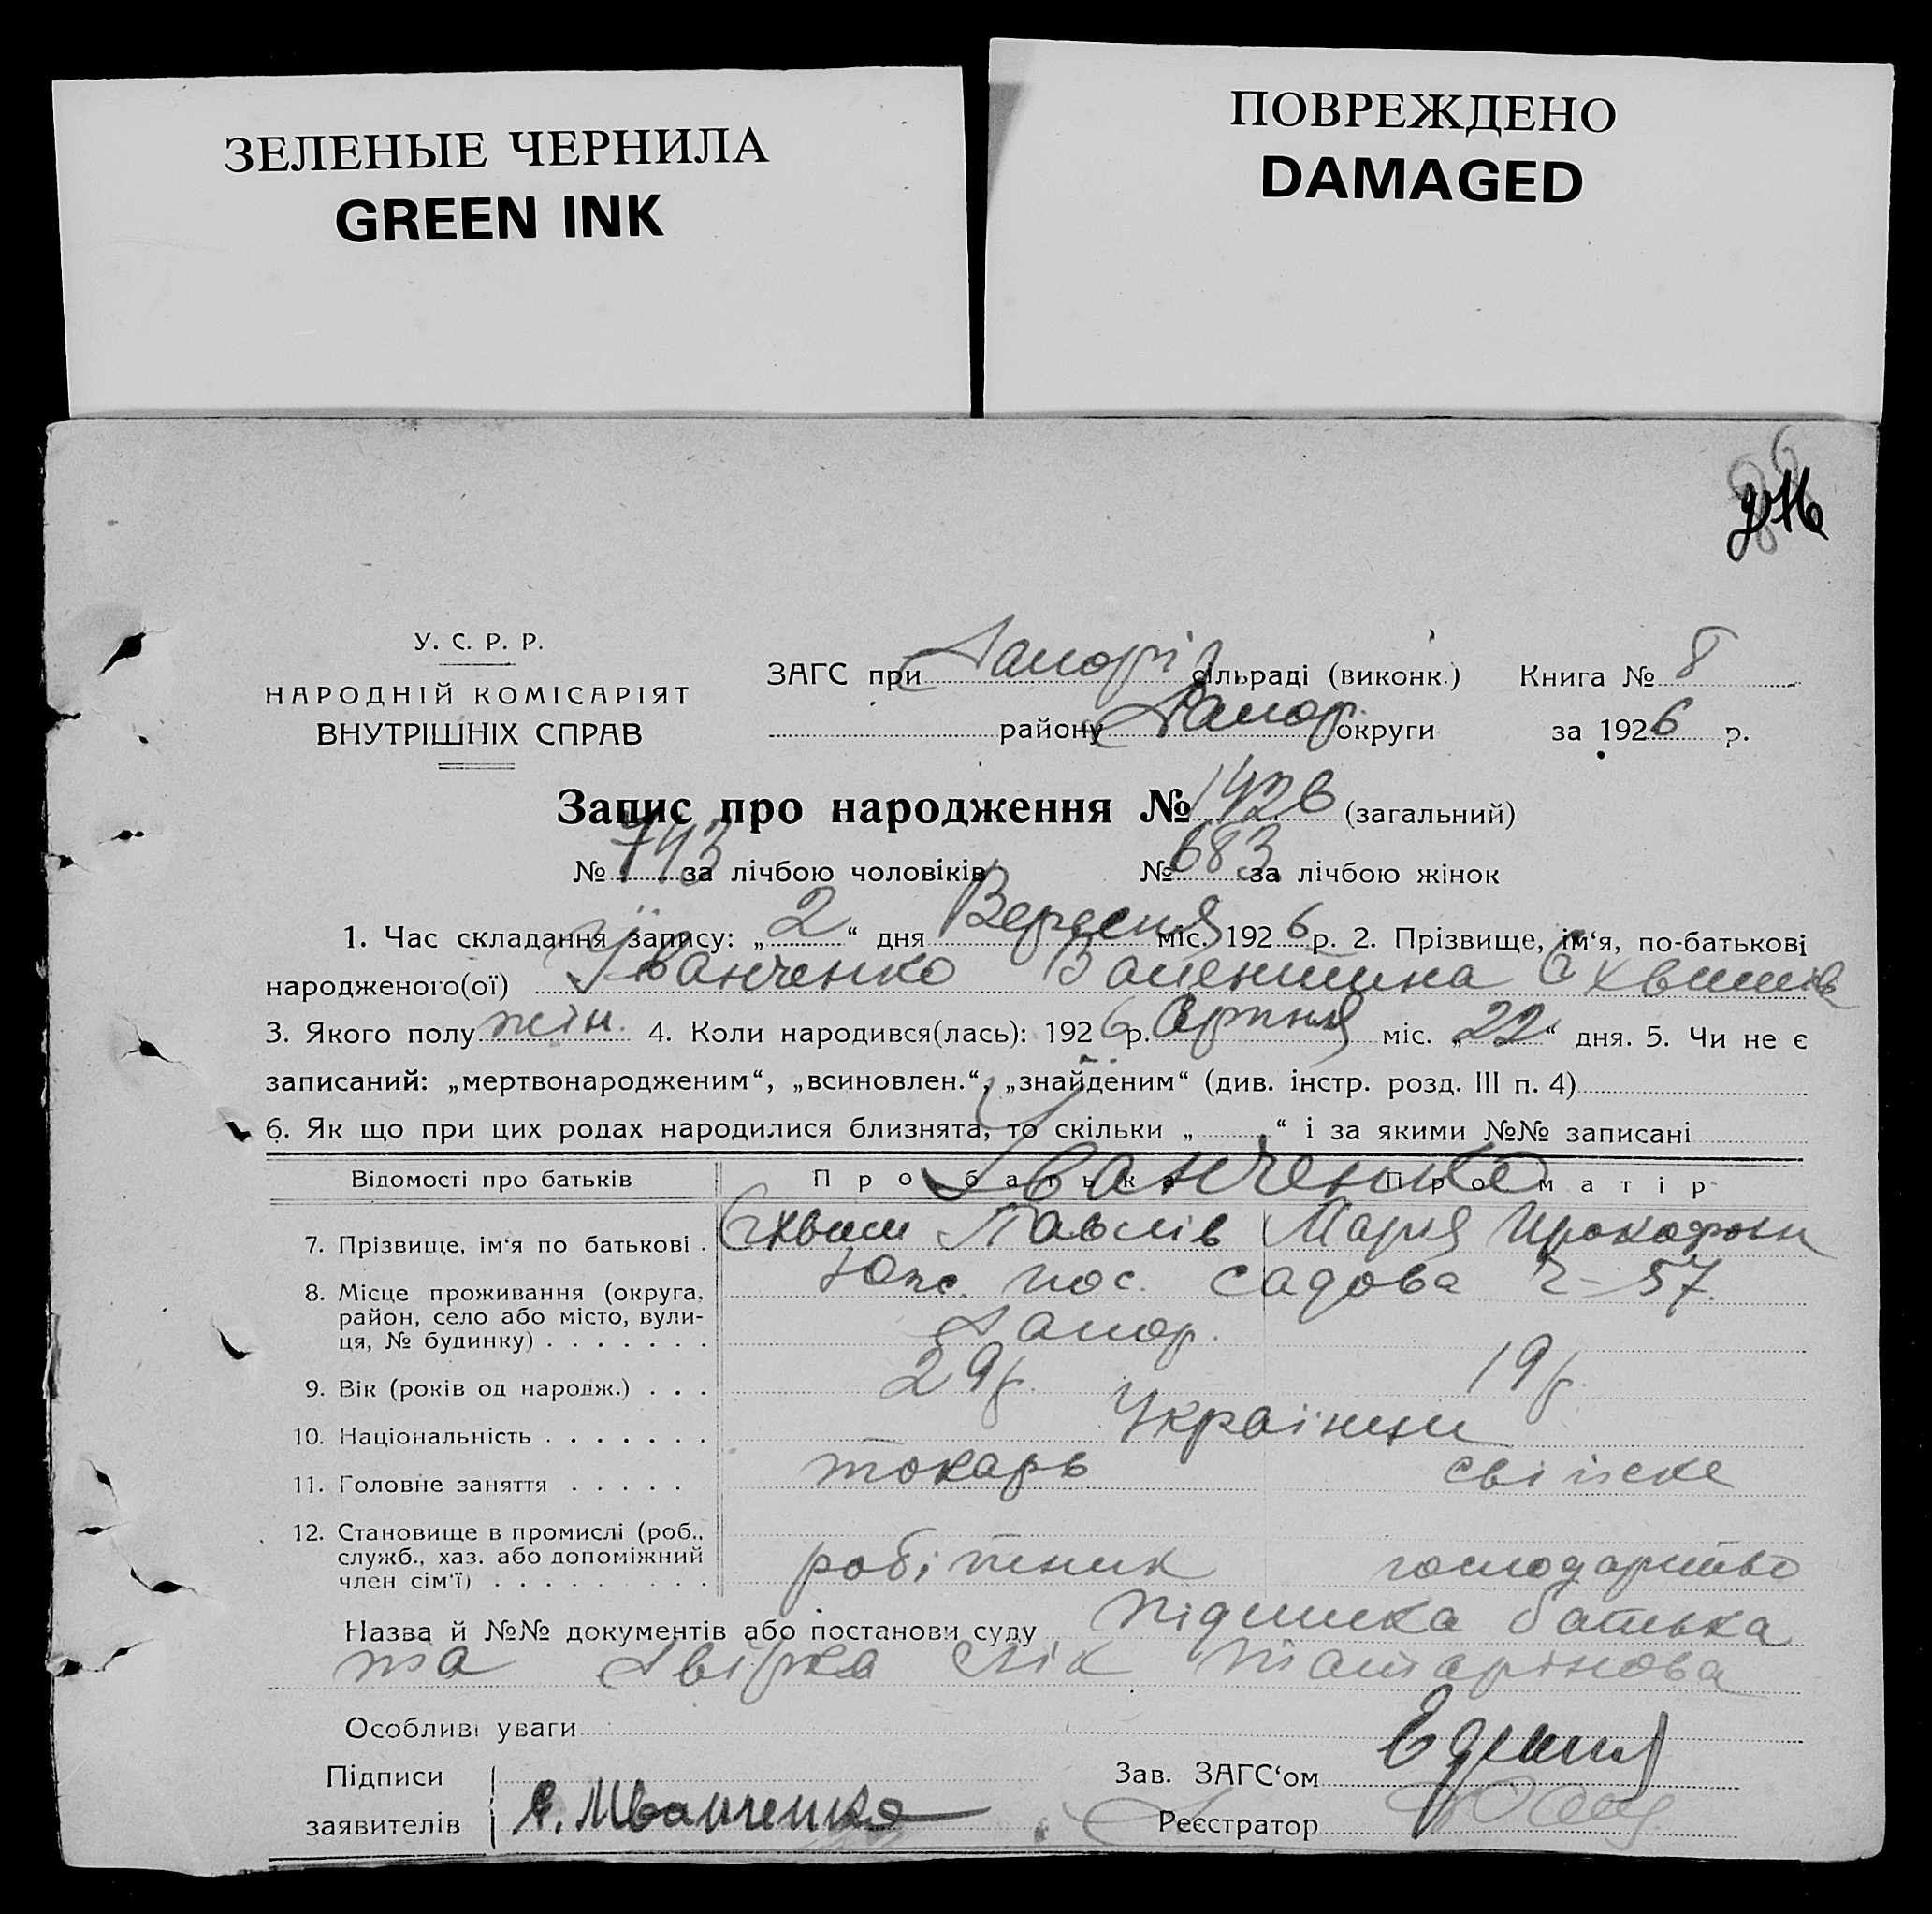 ЗЕЛЕНЫЕ ЧЕРНИЛА
GREEN INK
ПОВРЕЖДЕНО
DAMAGED
У. С. Р. Р.
НАРОДНІЙ КОМІСАРІЯТ
ВНУТРІШНІХ СПРАВ
ЗАГС при Запоріз сільраді (виконк.) Книга № 8
району Запор. округи за 1926 р.
Запис про народження № 1426 (загальний)
№ 743 за лічбою чоловіків № 683 за лічбою жінок
1. Час складання запису: „2“ дня Вересня міс. 1926 р. 2. Прізвище, ім‘я, по-батькові
народженого(ої) Іванченко Валентина Єхвимів
3. Якого полу жін. 4. Коли народився(лась): 1926 р. Серпня міс. „22“ дня. 5. Чи не є
записаний: „мертвонародженим“, „всиновлен.“, „знайденим“ (див. інстр. розд. III п. 4)
6. Як що при цих родах народилися близнята, то скільки „ “ і за якими №№ записані
Відомості про батьків Про батька Про матір
Іванченко
7. Прізвище, ім‘я по батькові . Єхвим Павлів Марія Прокофьев
8. Місце проживання (округа, район, село або місто, вули-ця, № будинку) . . . . . . . Южн. пос. Садова 57.
Запор.
9. Вік (років од народж.) . . . 29 р. 19 р.
10. Національність . . . . . . . Українці
11. Головне заняття . . . . . токарь свійске
12. Становище в промислі (роб., служб., хаз. або допоміжний член сім‘ї) . . . . . . . . . робітник господарство
Назва й №№ документів або постанови суду підписка батька
та звірка лік Татарінова
Особливі уваги
Підписи
заявителів Є. Иванченко
Зав. ЗАГС‘ом
Реєстратор